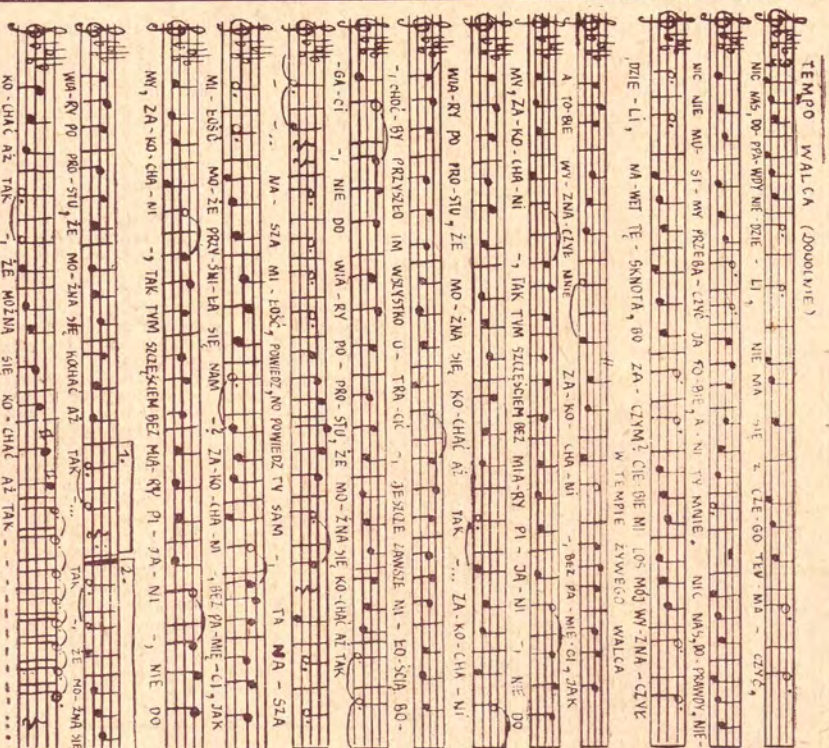 TEMPO WALCA (DOWOLNIE)
NIC NAS, DO-PRAWDY NIE DZIE - LI, NIE MA SIĘ Z CZE-GO TŁU-MA - CZYĆ,
NIC NIE MU- SI-MY PRZEBA-CZYĆ JA TO-BIE, A - NI TY MNIE. NIC NAS, DO-PRAWDY, NIE
DZIE - LI, NA-WET TĘ-SKNOTA, BO ZA - CZYM? CIE BIE MI LOS MÓJ WY-ZNA-CZYŁ
W TEMPIE ŻYWEGO WALCA
A TO-BIE WY-ZNA-CZYŁ MNIE ZA-KO- CHA-NI -, BEZ PA - MIĘ - CI, JAK
MY, ZA-KO-CHA-NI -, TAK TYM SZCZĘŚCIEM BEZ MIA-RY PI - JA - NI -, NIE DO
WIA-RY PO PRO-STU, ŻE MO-ŻNA SIĘ KO-CHAĆ AŻ TAK -... ZA-KO-CHA - NI
-, CHOĆ-BY PRZYSZŁO IM WSZYSTKO U - TRA-CIĆ -, JESZCZE ZAWSZE MI - ŁO-ŚCIĄ BO-
-GA-CI -, NIE DO WIA-RY PO - PRO-STU, ŻE MO-ŻNA SIĘ KO-CHAĆ AŻ TAK
- -... NA - SZA MI - ŁOŚĆ, POWIEDZ, NO POWIEDZ TY SAM -, TA NA - SZA
MI - ŁOŚĆ MO-ŻE PRZY-ŚNI-ŁA SIĘ NAM -? ZA-KO-CHA-NI -, BEZ PA-MIĘ-CI, JAK
MY, ZA-KO-CHA-NI -, TAK TYM SZCZĘŚCIEM BEZ MIA-RY PI - JA-NI -, NIE DO
1. 2.
WIA-RY PO PRO-STU, ŻE MO-ŻNA SIĘ KOCHAĆ AŻ TAK -... TAK -, ŻE MO-ŻNA SIĘ
KO-CHAĆ AŻ TAK -, ŻE MOŻNA SIĘ KO-CHAĆ AŻ TAK - - - - - - -...